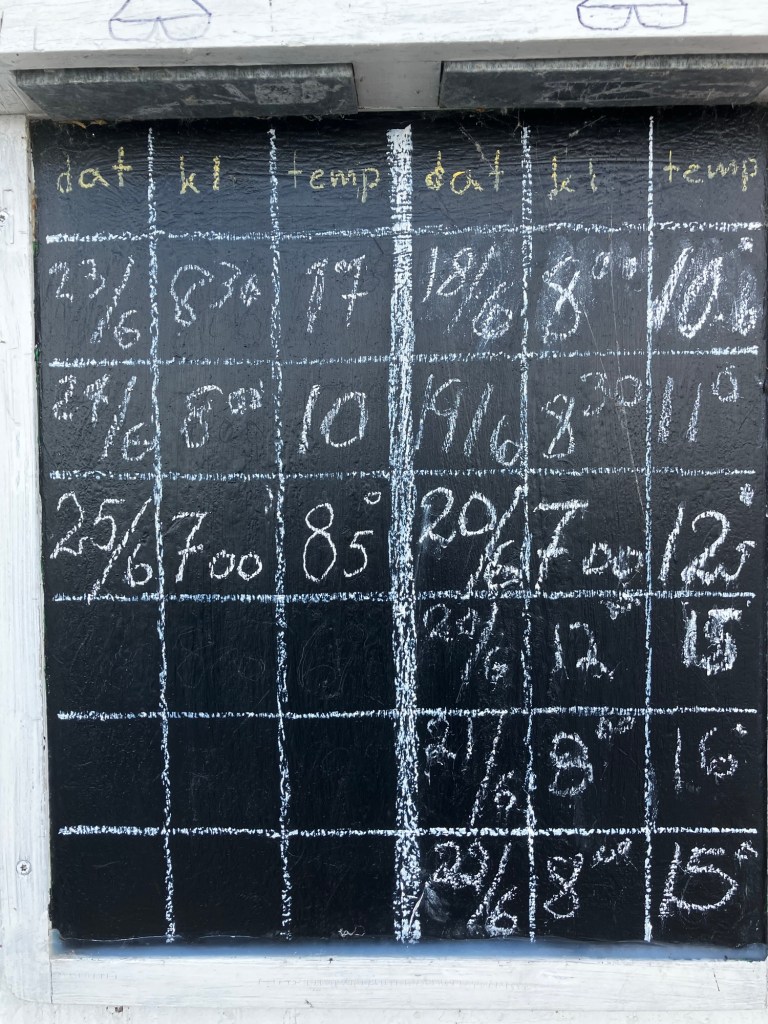 dat kl temp dat kl temp
23/6 8³⁰ 17 18/6 8⁰⁰ 10°
24/6 8⁰⁰ 10 19/6 8³⁰ 11°
25/6 7 00 8 5° 20/6 7 00 12 5°
20/6 12 15
21/6 8⁰⁰ 16°
22/6 8⁰⁰ 15°